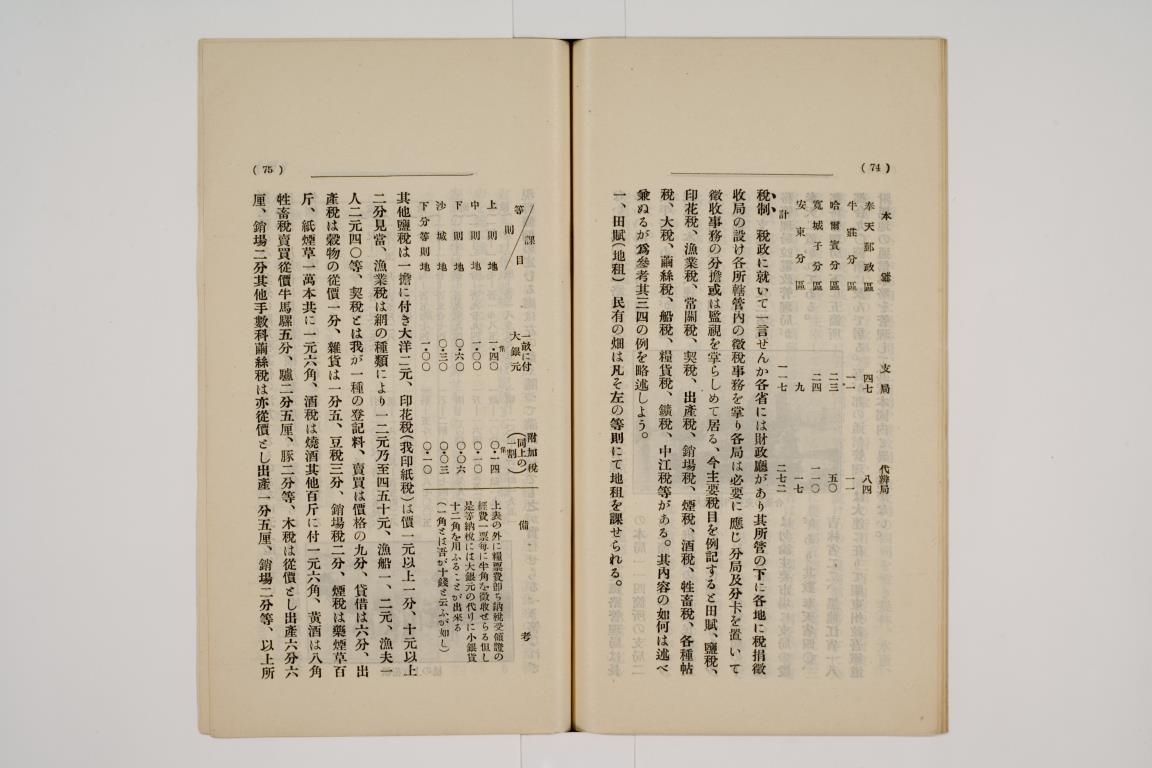 (74)
本　　部　　支局　　代辨局
奉天郵政區　　四七　　八四
牛莊分區　　一一　　一一
哈爾賓分區　　二三　　五〇
寬城子分區　　二四　　一一〇
安東分區　　九　　一七
計　　一一七　　二七二
稅制、稅政に就いて一言せんか各省には財政廳があり其所管の下に各地に稅捐徵
收局の設け各所轄管內の徵稅事務を掌り各局は必要に應じ分局及分卡を置いて
徵收事務の分擔或は監視を掌らしめて居る、今主要稅目を例記すると田賦、鹽稅、
印花稅、漁業稅、常關稅、契稅、出產稅、銷場稅、煙稅、酒稅、牲畜稅、各種帖
稅、大稅、繭絲稅、船稅、糧貨稅、鑛稅、中江稅等がある。其內容の如何は述べ
兼ぬるが爲參考其三四の例を略述しよう。
一、田賦(地租)　民有の畑は凡そ左の等則にて地租を課せられる。
(75)
等則／課目　　一畝に付大銀元　　附加稅(同上の一割)　　備考
上則地　　一・四〇　　〇・一四
中則地　　一・〇〇　　〇・一〇
下則地　　〇・六〇　　〇・〇六
沙城地　　〇・三〇　　〇・〇三
下分等則地　　一・〇〇　　〇・一〇
上表の外に糧票費卽ち納稅受領證の
經費一票每に半角を徵收せらる但し
是等納稅には大銀元の代りに小銀貨
十二角を用ふることが出來る
(一角とは吾が十錢と云ふが如し)
其他鹽稅は一擔に付き大洋二元、印花稅(我印紙稅)は價一元以上一分、十元以上
二分見當、漁業稅は網の種類により一二元乃至四五十元、漁船一、二元、漁夫一
人二元四〇等、契稅とは我が一種の登記料、賣買は價格の九分、貸借は六分、出
產稅は穀物の從價一分、雜貨は一分五、豆稅三分、銷場稅二分、煙稅は藥煙草百
斤、紙煙草一萬本共に一元六角、酒稅は燒酒其他百斤に付一元六角、黃酒は八角
牲畜稅賣買從價牛馬騾五分、驢二分五厘、豚二分等、木稅は從價とし出產六分六
厘、銷場二分其他手數料繭絲稅は亦從價とし出產一分五厘、銷場二分等、以上所